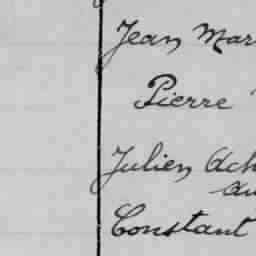 Jean Mar
Pierre
Julien Ach
au
Constant